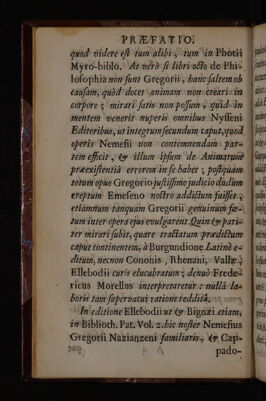 PRÆFATIO.
quod videre est tum alibi, tum in Photii
Myro-biblo. At verò si libri octo de Phi-
losophia non sunt Gregorii, hanc saltem ob
causam, quòd docet animam non creari in
corpore; mirari satis non possum, quid in
mentem venerit nuperis omnibus Nysseni
Editoribus, ut integrum secundum caput, quod
operis Nemesii non contemnendam par-
tem efficit, & illum ipsum de Animarum
præexistentiâ errorem in se habet; postquam
totum opus Gregorio justissimo judicio dudum
ereptum Emeseno nostro addictum fuisset,
etiamnum tanquam Gregorii genuinum fœ-
tum inter opera ejus evulgarent. Quin & pari-
ter mirari subit, quare tractatum prædictum
caput continentem, à Burgundione Latinè e-
ditum, necnon Cononis, Rhenani, Vallæ,
Ellebodii curis elucubratum; denuò Frede-
ricus Morellus interpretaretur: nullâ la-
boris tam supervacui ratione redditâ.
In editione Ellebodii ut & Bignæi etiam,
in Biblioth. Pat. Vol. 2. hic noster Nemesius
Gregorii Nazianzeni familiaris, & Cap-
pado-